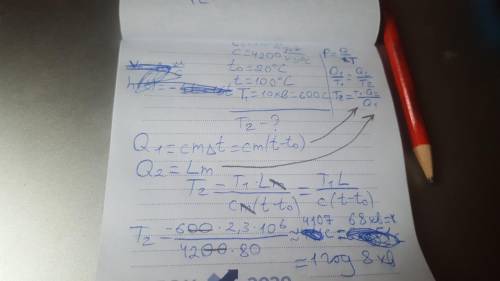 c=4200
t₀=20°C
t=100°C
T₁=10хв=600с
T₂-?
P=Q/T
Q₁/T₁=Q₂/T₂
T₂=T₁Q₂/Q₁
Q₁=cmΔt=cm(t-t₀)
Q₂=Lm
T₂=T₁·Lm/cm(t-t₀)=T₁L/c(t-t₀)
T₂=600·2,3·10⁶/4200·80≈4107с=68хв=
=1год 8хв